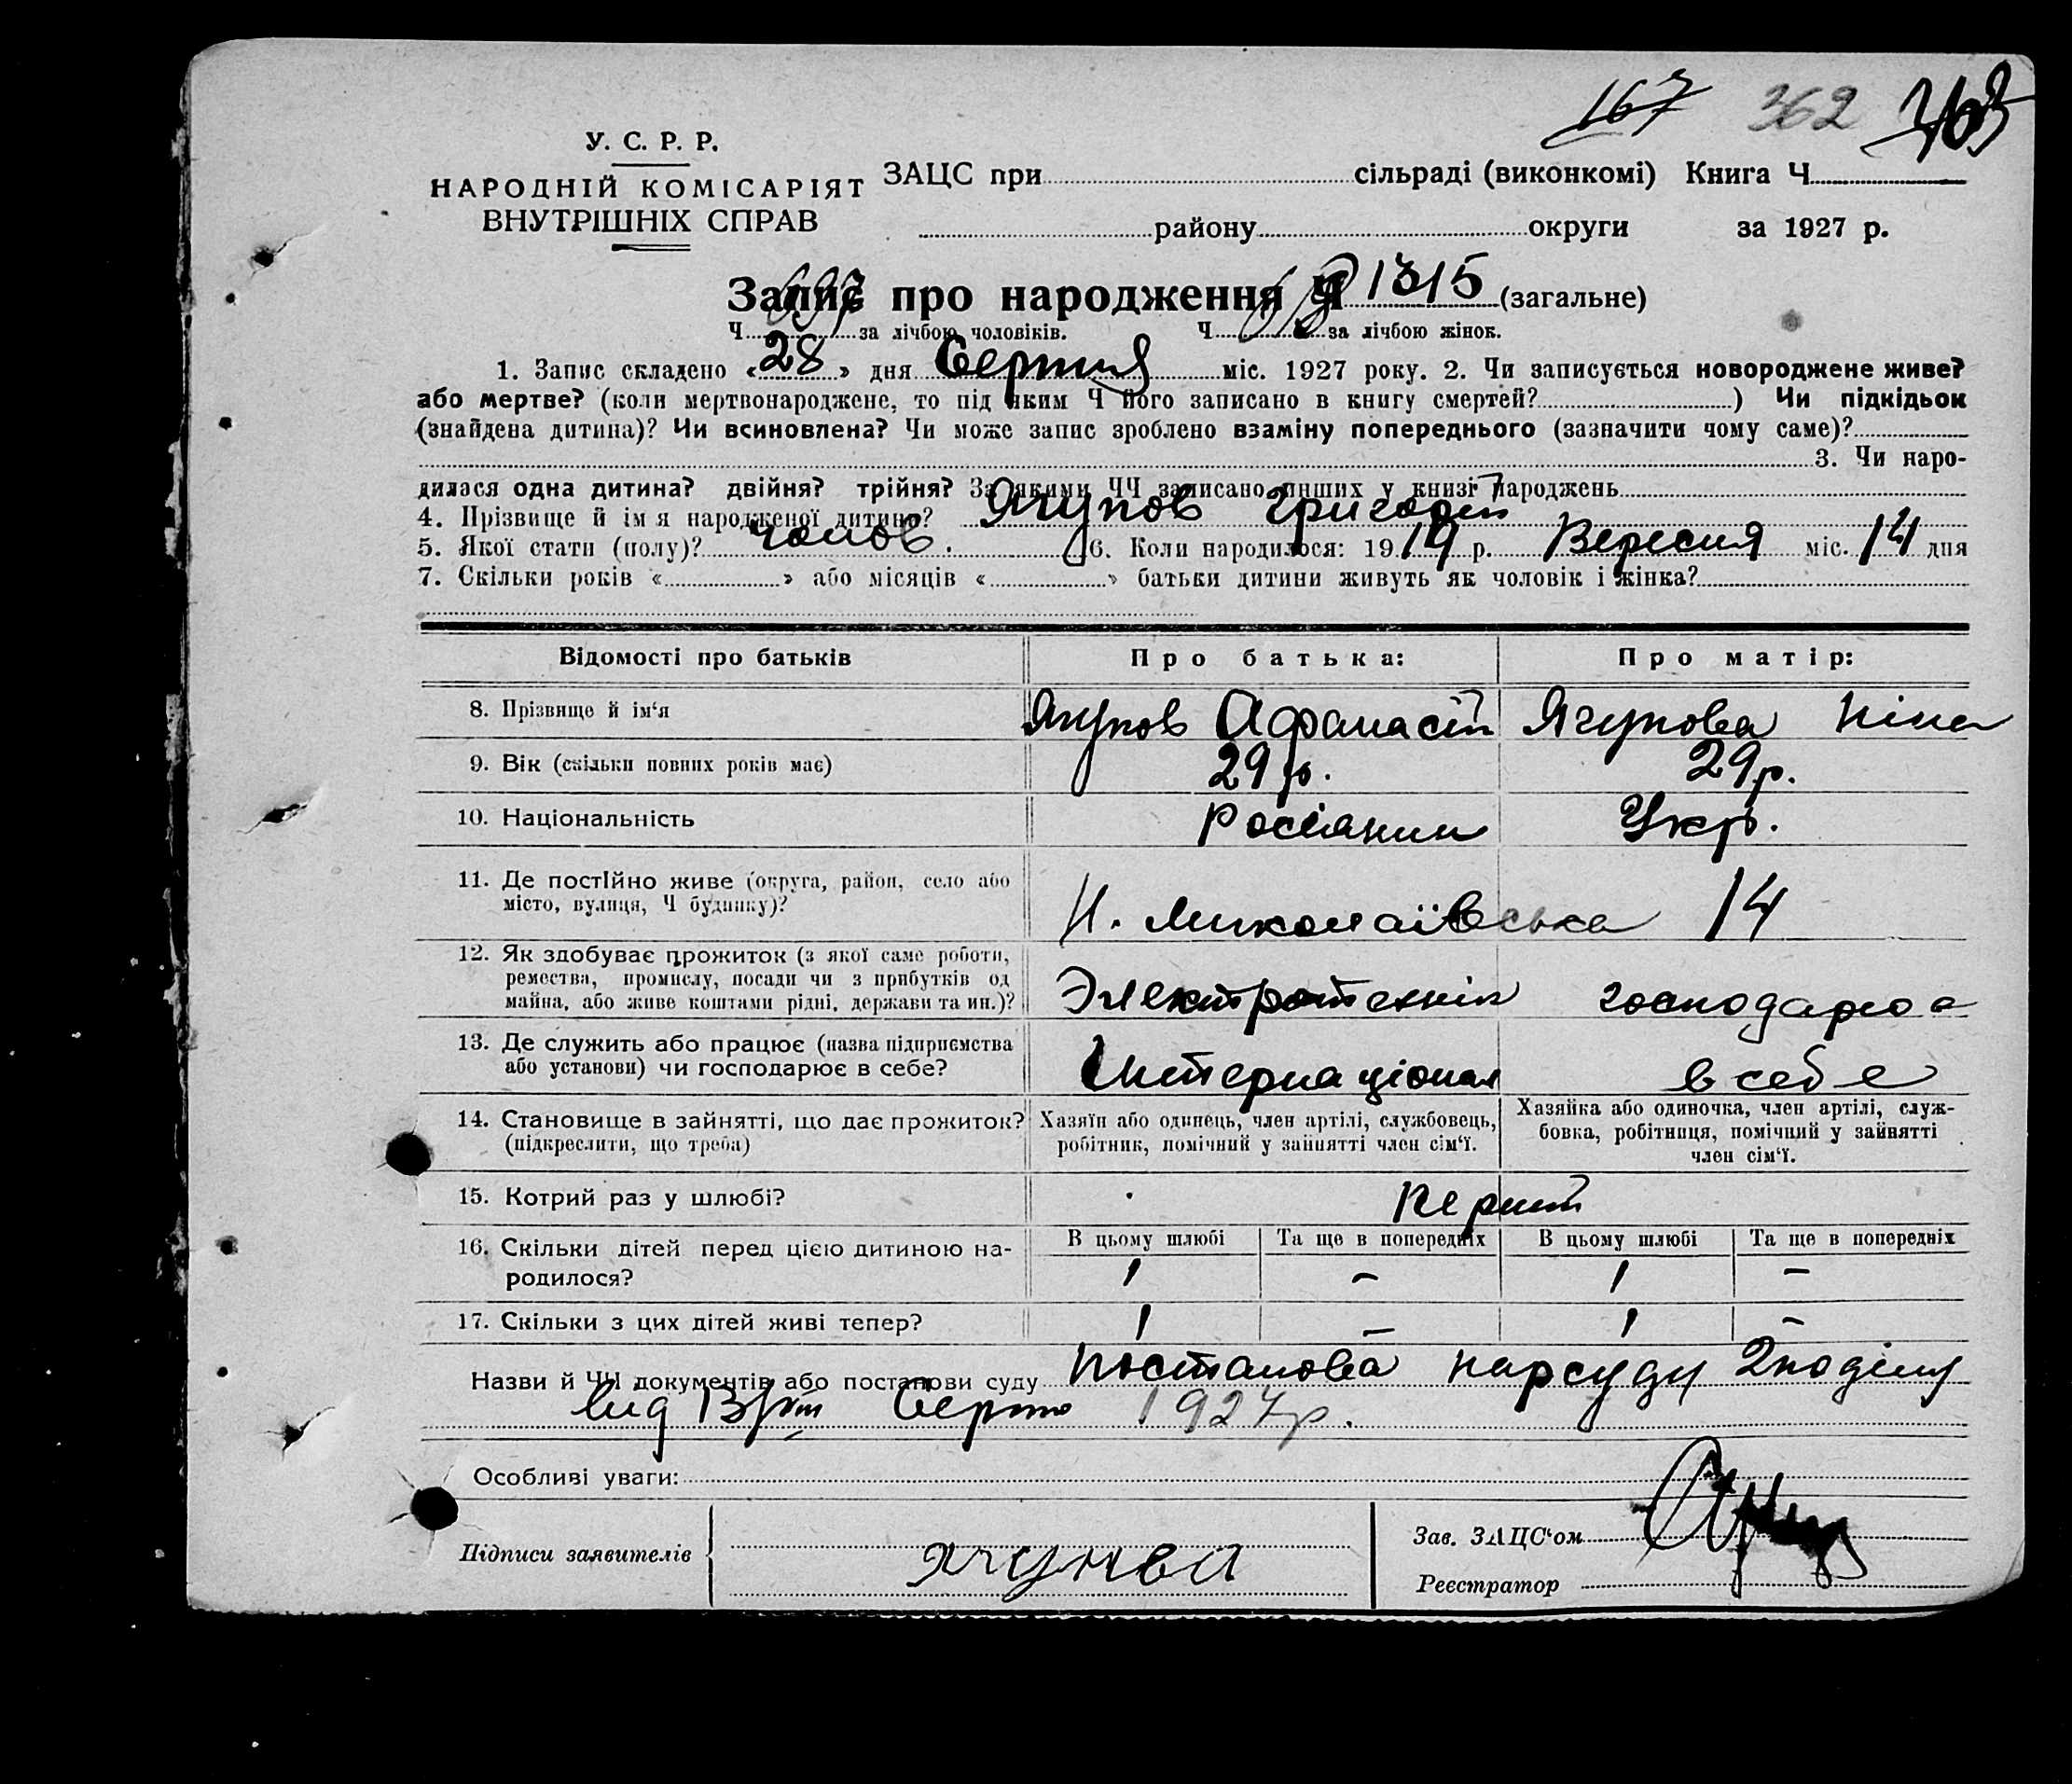 167 362 363
У. С. Р. Р.
НАРОДНІЙ КОМІСАРІЯТ
ВНУТРІШНІХ СПРАВ
ЗАЦС при сільраді (виконкомі) Книга Ч.
району округи за 1927 р.
Запис про народження Ч 1315 (загальне)
Ч. 697 за лічбою чоловіків. Ч. за лічбою жінок.
1. Запис складено «28» дня Серпня міс. 1927 року. 2. Чи записується новороджене живе?
або мертве? (коли мертвонароджене, то під яким Ч його записано в книгу смертей?) Чи підкідьок
(знайдена дитина)? Чи всиновлена? Чи може запис зроблено взаміну попереднього (зазначити чому саме)?
3. Чи наро-
дилася одна дитина? двійня? трійня? За якими ЧЧ записано инших у книзі народжень
4. Прізвище й ім'я народженої дитини? Ягупов Григорій
5. Якої стати (полу)? чолов. 6. Коли народилося: 1919 р. Вересня міс. 14 дня
7. Скільки років « » або місяців « » батьки дитини живуть як чоловік і жінка?
Відомості про батьків Про батька: Про матір:
8. Прізвище й ім'я Ягупов Афанасій Ягупова Ніна
9. Вік (скільки повних років має) 29 р. 29 р.
10. Національність Росіянин Укр.
11. Де постійно живе (округа, район, село або
місто, вулиця, Ч будинку)? Н. Миколаївська 14
12. Як здобуває прожиток (з якої саме роботи,
ремества, промислу, посади чи з прибутків од
майна, або живе коштами рідні, держави та ин.)? Электротехнік господарює
13. Де служить або працює (назва підприємства
або установи) чи господарює в себе? Интернаціонал в себе
14. Становище в зайнятті, що дає прожиток?
(підкреслити, що треба)
Хазяїн або одинець, член артілі, службовець,
робітник, помічний у зайнятті член сім'ї.
Хазяйка або одиночка, член артілі, служ-
бовка, робітниця, помічний у зайнятті
член сім'ї.
15. Котрий раз у шлюбі? Перший
16. Скільки дітей перед цією дитиною на-
родилося?
В цьому шлюбі Та ще в попередніх В цьому шлюбі Та ще в попередніх
1 – 1 –
17. Скільки з цих дітей живі тепер? 1 – 1 –
Назви й ЧЧ документів або постанови суду Постанова нарсуду 2 поділу
вид 13/VIII Серпня 1927 р.
Особливі уваги:
Підписи заявителів
Зав. ЗАЦС'ом
Реєстратор